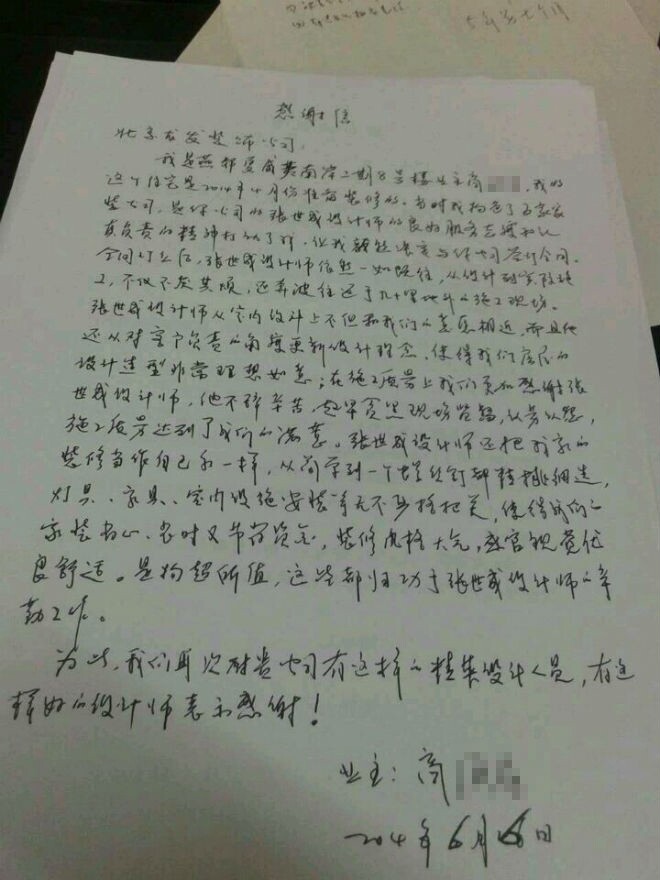 感谢信
北京龙发装饰公司:
我是燕郊夏威夷南岸二期8号楼业主商 我的
这个住宅是2014年4月份准备装修的。当时我
装公司,是你公司的张世威设计师的良好服务态度和认
真负责的精神打动了我,让我毅然决定与你公司签订合同。
合同订立后,张世威设计师依然一如既往,从设计到实际施
工,不仅不厌其烦,还奔波往返于几十里地外的施工现场。
张世威设计师从室内设计上不但和我们的意愿相近,而且他
还从对客户负责的角度更新设计理念,使得我们房屋的
设计造型非常理想如意;在施工质量上我们更加感谢张
世威设计师,他不辞辛苦,起早贪黑现场监督,认劳认怨,
施工质量达到了我们的满意。张世威设计师还把我家的
装修当作自己家一样,从 到一个螺丝钉都精挑细选,
灯具、家具、室内设施安装等无不严格把关,使得我们的
家装省心、省时又节约资金,装修风格大气,感官视觉优
良舒适。是物超所值,这些都归功于张世威设计师的辛
勤工作。
为此,我们再次对贵公司有这样的精装设计人员,有这
样好的设计师表示感谢!
业主:商
2014年6月 日